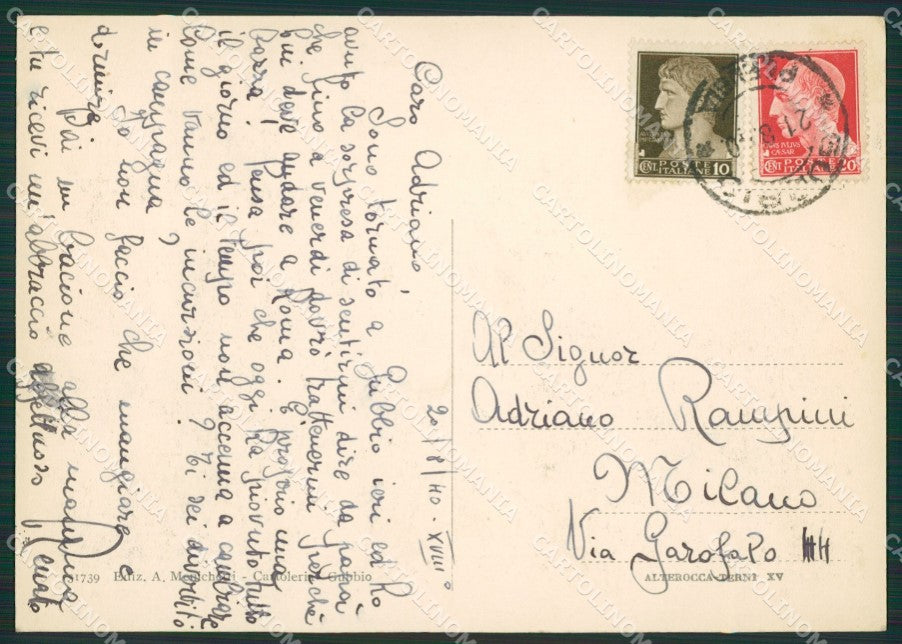 20/8/40-XVIII°
Caro Adriano,
Sono tornato a Gubbio ieri ed ho
avuto la sorpresa di sentirmi dire da papà
che fino a venerdì dovrò trattenermi perché
lui deve andare a Roma. È proprio una
barra! Pensa poi che oggi ha piovuto tutto
il giorno ed il tempo non accenna a cambiare
Come vanno le incursioni? Ti sei divertito
in campagna?
Io non faccio che mangiare e
dormire.
Dai un bacione alla mamma
e tu ricevi un'abbraccio affettuoso
Renato
1739 Ediz. A. Menichetti - Cartoleria - Gubbio
POSTE ITALIANE
CENT. 10
CAIUS IULIUS CAESAR
POSTE ITALIANE
CENT. 20
Al Signor
Adriano Rampini
Milano
Via Garofalo
ALTEROCCA-TERNI XV
CARTOLINOMANIA